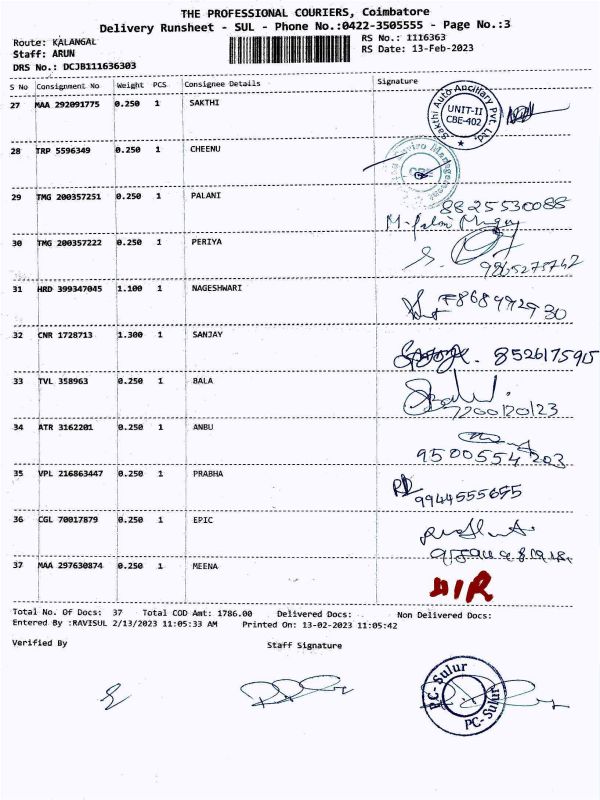 THE PROFESSIONAL COURIERS, Coimbatore
Delivery Runsheet - SUL - Phone No.:0422-3505555 - Page No.:3
Route: KALANGAL RS No.: 1116363
Staff: ARUN RS Date: 13-Feb-2023
DRS No.: DCJB111636303
S No Consignment No Weight PCS Consignee Details Signature
27 MAA 292091775 0.250 1 SAKTHI
Sakthi Auto Ancillary Pvt. Ltd
UNIT-II
CBE-402
28 TRP 5596349 0.250 1 CHEENU
29 TMG 200357251 0.250 1 PALANI
8825530088
30 TMG 200357222 0.250 1 PERIYA
9865273742
31 HRD 399347045 1.100 1 NAGESHWARI
32 CNR 1728713 1.300 1 SANJAY
852617595
33 TVL 358963 0.250 1 BALA
7200120123
34 ATR 3162201 0.250 1 ANBU
9500554203
35 VPL 216863447 0.250 1 PRABHA
9944555695
36 CGL 70017879 0.250 1 EPIC
37 MAA 297630874 0.250 1 MEENA
AIR
Total No. Of Docs: 37 Total COD Amt: 1786.00 Delivered Docs: Non Delivered Docs:
Entered By :RAVISUL 2/13/2023 11:05:33 AM Printed On: 13-02-2023 11:05:42
Verified By Staff Signature
PC-Sulur
PC-Sulur